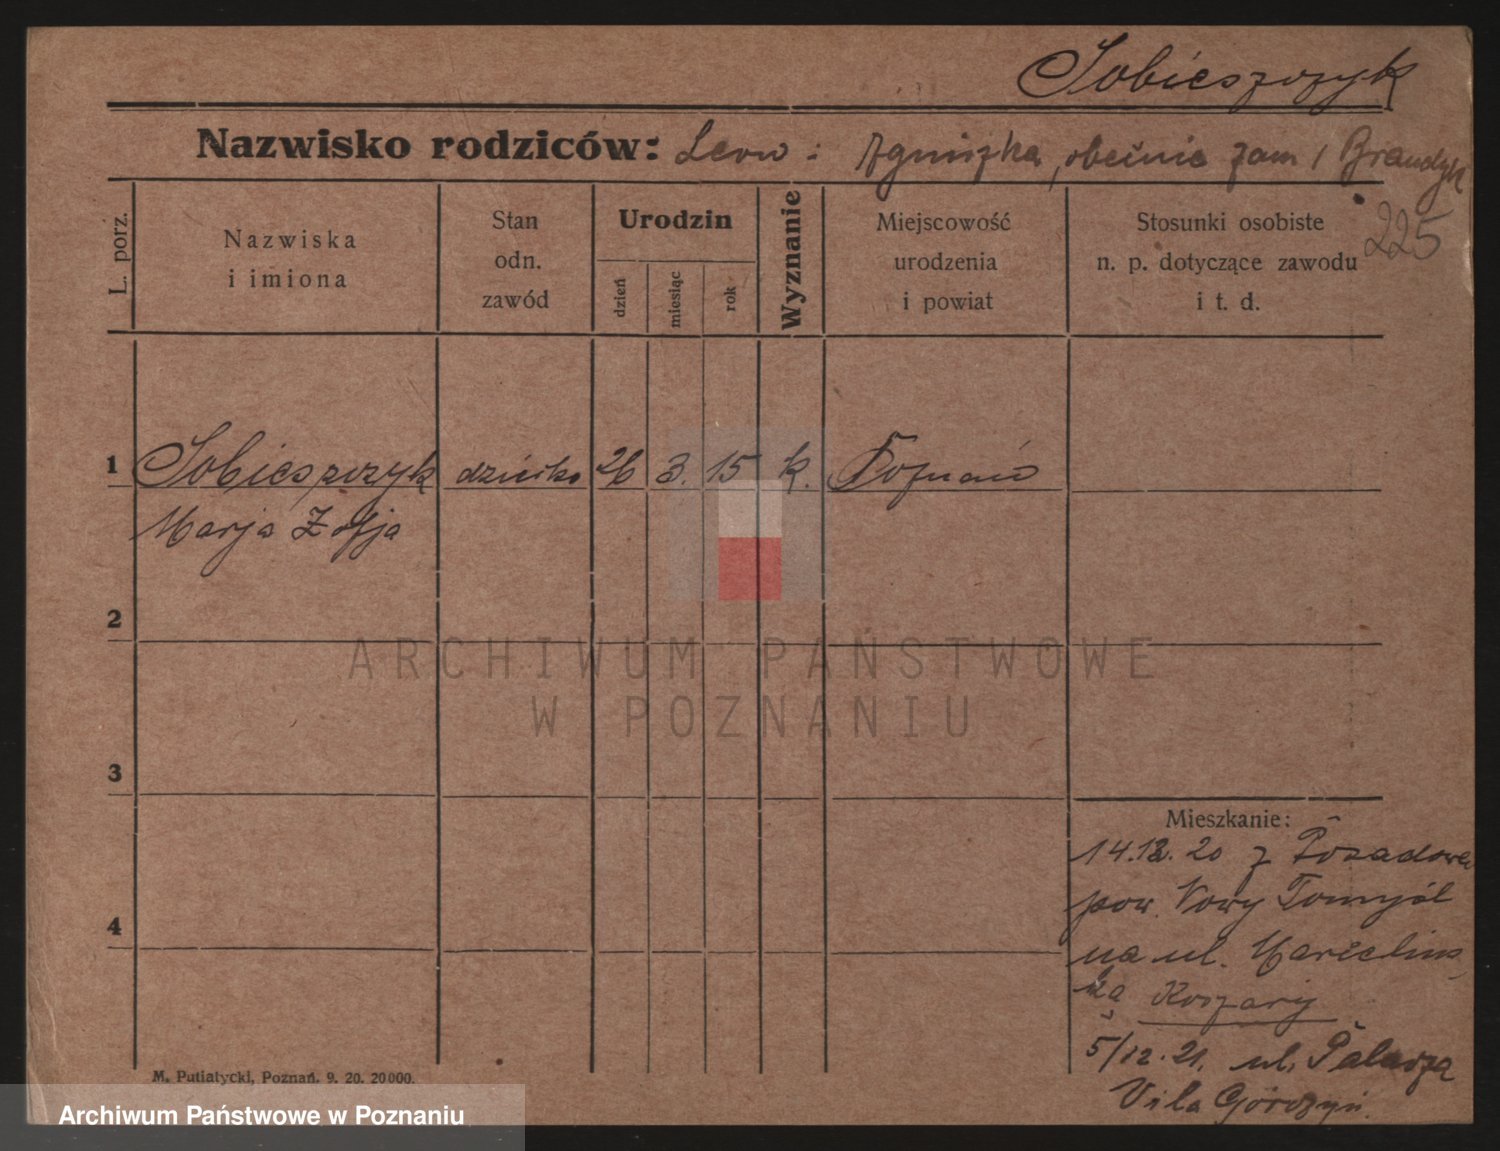 Sobieszczyk
Nazwisko rodziców: Leon i Agnieszka, obecnie zam
225
L. porz.
Nazwiska
i imiona
Stan
odn.
zawód
Urodzin
dzień
miesiąc
rok
Wyznanie
Miejscowość
urodzenia
i powiat
Stosunki osobiste
n. p. dotyczące zawodu
i t. d.
1 Sobieszczyk dziecko 26 3. 15 k. Poznań
Marja Zofja
2
3
4
Mieszkanie:
14.12. 20 z Posadowa
pow. Nowy Tomyśl
na ul. Marcelins
ka Koszary
5/12. 21. ul.
Vila Górczyn.
M. Putiatycki, Poznań. 9. 20. 20000.
ARCHIWUM PAŃSTWOWE
W POZNANIU
Archiwum Państwowe w Poznaniu